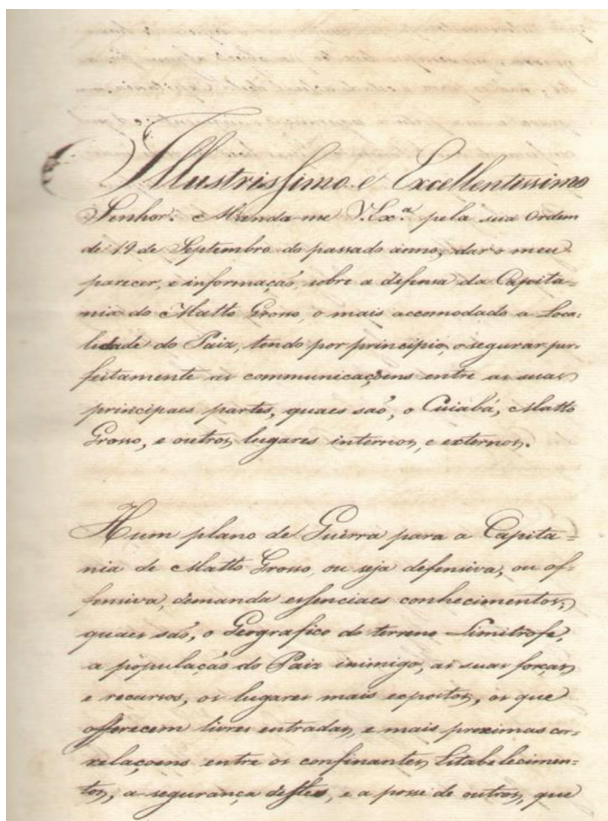 Illustrissimo e Excellentissimo
Senhor. Manda-me V. Ex.ª pela sua Ordem
de 19 de Septembro do passado anno, dar o meu
parecer, e informação, sobre a defensa da Capita-
nia do Matto Grosso, o mais accomodado a Loca-
lidade do Paiz, tendo por principio, o segurar per-
feitamente as communicaçoens entre as suas
principaes partes, quaes saõ, o Cuiabá, Matto
Grosso, e outros lugares interiors, e externos.
Hum plano de Guerra para a Capita-
nia de Matto Grosso, ou seja defensiva, ou of-
fensiva, demanda essenciaes conhecimentos,
quaes saõ, o Geografico do terreno Limitrofe,
a população do Paiz inimigo, as suas forças
e recursos, os lugares mais expostos, os que
offerecem livres entradas, e mais proximas co-
relaçoens entre os confinantes Estabelecimen-
tos, a segurança destes, e a posse de outros, que